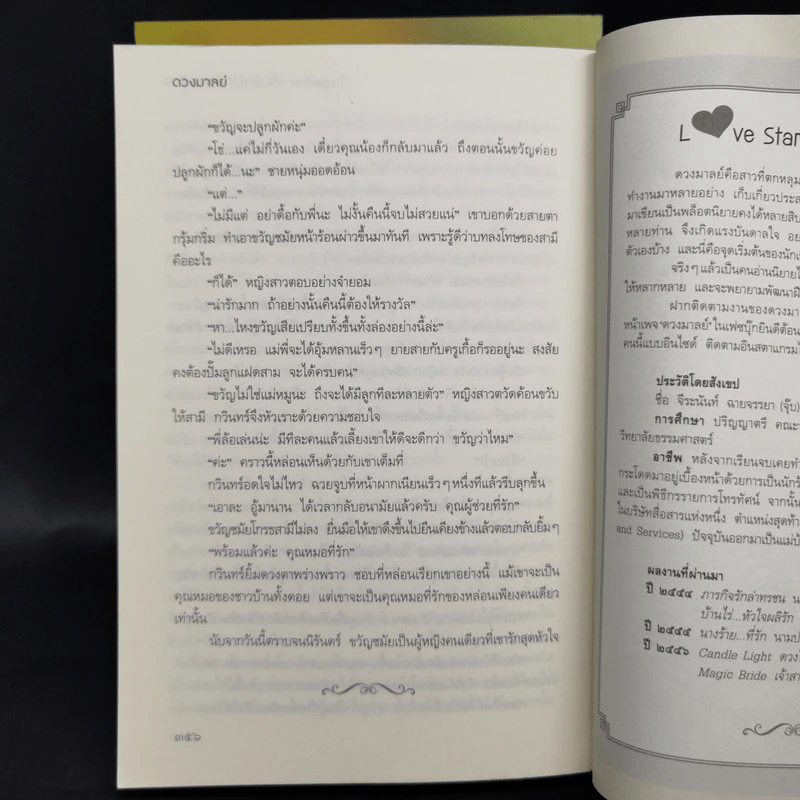 ดวงมาลย์
“ขวัญจะปลูกผักค่ะ”
“โธ่...แค่ไม่กี่วันเอง เดี๋ยวคุณน้องก็กลับมาแล้ว ถึงตอนนั้นขวัญค่อย
ปลูกผักก็ได้...นะ” ชายหนุ่มออดอ้อน
“แต่...”
“ไม่มีแต่ อย่าดื้อกับพี่นะ ไม่งั้นคืนนี้จบไม่สวยแน่” เขาบอกด้วยสายตา
กรุ้มกริ่ม ทำเอาขวัญชมัยหน้าร้อนผ่าวขึ้นมาทันที เพราะรู้ดีว่าบทลงโทษของสามี
คืออะไร
“ก็ได้” หญิงสาวตอบอย่างจำยอม
“น่ารักมาก ถ้าอย่างนั้นคืนนี้ต้องให้รางวัล”
“หา...ไหงขวัญเสียเปรียบทั้งขึ้นทั้งล่องอย่างนี้ล่ะ”
“ไม่ดีเหรอ แม่พี่จะได้อุ้มหลานเร็วๆ ยายสายกับครูเกื้อก็รออยู่นะ สงสัย
คงต้องปั๊มลูกแฝดสาม จะได้ครบคน”
“ขวัญไม่ใช่แม่หมูนะ ถึงจะได้มีลูกทีละหลายตัว” หญิงสาวตวัดค้อนขวับ
ให้สามี กวินทร์จึงหัวเราะด้วยความชอบใจ
“พี่ล้อเล่นน่ะ มีทีละคนแล้วเลี้ยงเขาให้ดีจะดีกว่า ขวัญว่าไหม”
“ค่ะ” คราวนี้หล่อนเห็นด้วยกับเขาเต็มที่
กวินทร์อดใจไม่ไหว ฉวยจูบที่หน้าผากเนียนเร็วๆ หนึ่งทีแล้วรีบลุกขึ้น
“เอาละ อู้มานาน ได้เวลากลับอนามัยแล้วครับ คุณผู้ช่วยที่รัก”
ขวัญชมัยโกรธสามีไม่ลง ยื่นมือให้เขาดึงขึ้นไปยืนเคียงข้างแล้วตอบกลับยิ้มๆ
“พร้อมแล้วค่ะ คุณหมอที่รัก”
กวินทร์ยิ้มดวงตาพร่างพราว ชอบที่หล่อนเรียกเขาอย่างนี้ แม้เขาจะเป็น
คุณหมอของชาวบ้านทั้งดอย แต่เขาจะเป็นคุณหมอที่รักของหล่อนเพียงคนเดียว
เท่านั้น
นับจากวันนี้ตราบจนนิรันดร์ ขวัญชมัยเป็นผู้หญิงคนเดียวที่เขารักสุดหัวใจ
๓๕๖
L ve Star
ดวงมาลย์คือสาวที่ตกหลุม
ทำงานมาหลายอย่าง เก็บเกี่ยวประส
มาเขียนเป็นพล็อตนิยายคงได้หลายสิบ
หลายท่าน จึงเกิดแรงบันดาลใจ
ตัวเองบ้าง และนี่คือจุดเริ่มต้นของนัก
จริงๆ แล้วเป็นคนอ่านนิยาย
ให้หลากหลาย และจะพยายามพัฒนา
ฝากติดตามงานของดวงมา
หน้าเพจ ‘ดวงมาลย์’ ในเฟซบุ๊กยินดีต้อน
คนนี้แบบอินไซด์ ติดตามอินสตาแกรม
ประวัติโดยสังเขป
ชื่อ จีระนันท์ ฉายจรรยา (จุ๊บ)
การศึกษา ปริญญาตรี คณะ
วิทยาลัยธรรมศาสตร์
อาชีพ หลังจากเรียนจบเคยทำ
กระโดดมาอยู่เบื้องหน้าด้วยการเป็นนัก
และเป็นพิธีกรรายการโทรทัศน์ จากนั้น
ในบริษัทสื่อสารแห่งหนึ่ง ตำแหน่งสุดท้า
and Services) ปัจจุบันออกมาเป็นแม่บ้
ผลงานที่ผ่านมา
ปี ๒๕๕๔ ภารกิจรักล่าทรชน
บ้านไร่...หัวใจผลิรัก
ปี ๒๕๕๕ นางร้าย...ที่รัก นามป
ปี ๒๕๕๖ Candle Light ดวง
Magic Bride เจ้าสา